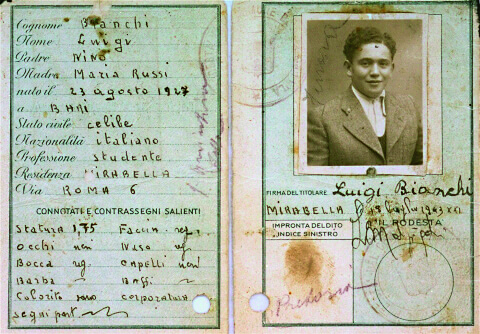 Cognome Bianchi
Nome Luigi
Padre Nino
Madre Maria Russi
nato il 23 agosto 1927
a BARI
Stato civile celibe
Nazionalità italiano
Professione studente
Residenza MIRABELLA
Via ROMA 6
CONNOTATI E CONTRASSEGNI SALIENTI
Statura 1,75 Faccia reg.
Occhi neri Naso reg.
Bocca reg. Capelli neri
Barba ~ Baffi ~
Colorito sano corporatura
segni part.
FIRMA DEL TITOLARE Luigi Bianchi
MIRABELLA 1943 XXI
IMPRONTA DEL DITO
INDICE SINISTRO
IL PODESTA